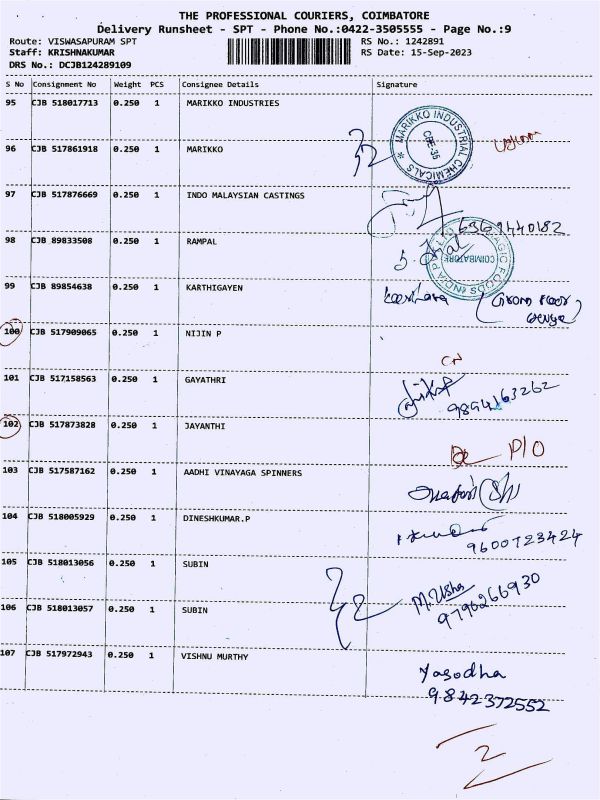 THE PROFESSIONAL COURIERS, COIMBATORE
Delivery Runsheet - SPT - Phone No.:0422-3505555 - Page No.:9
Route: VISWASAPURAM SPT RS No.: 1242891
Staff: KRISHNAKUMAR RS Date: 15-Sep-2023
DRS No.: DCJB124289109
S No Consignment No Weight PCS Consignee Details Signature
95 CJB 518017713 0.250 1 MARIKKO INDUSTRIES
MARIKKO INDUSTRIAL CHEMICALS
CBE-35
96 CJB 517861918 0.250 1 MARIKKO
97 CJB 517876669 0.250 1 INDO MALAYSIAN CASTINGS
6369440182
98 CJB 89833508 0.250 1 RAMPAL
MAGIC FOODS INDIA P LTD
COIMBATORE
99 CJB 89854638 0.250 1 KARTHIGAYEN
100 CJB 517909065 0.250 1 NIJIN P
CN
101 CJB 517158563 0.250 1 GAYATHRI
9894163262
102 CJB 517873828 0.250 1 JAYANTHI
P/O
103 CJB 517587162 0.250 1 AADHI VINAYAGA SPINNERS
104 CJB 518005929 0.250 1 DINESHKUMAR.P
9600723424
105 CJB 518013056 0.250 1 SUBIN
M. Usha
9790266930
106 CJB 518013057 0.250 1 SUBIN
107 CJB 517972943 0.250 1 VISHNU MURTHY
Yasodha
9842372552
2